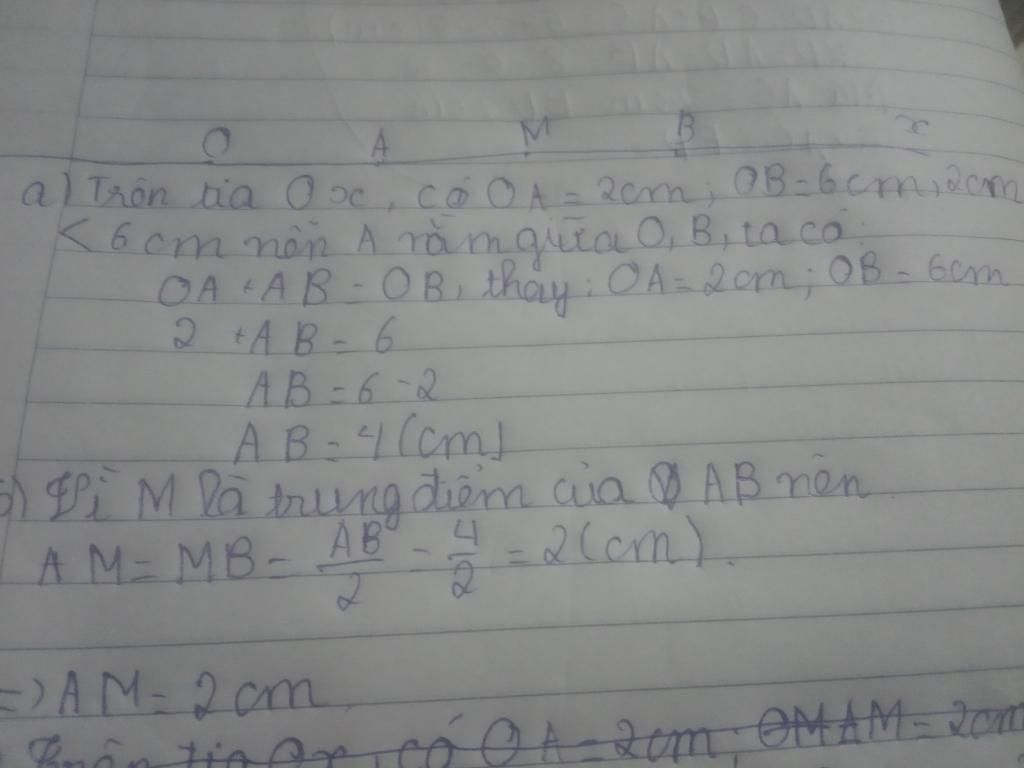 O A M B x
a) Trên tia Ox, có OA = 2cm; OB = 6cm, 2cm
< 6cm nên A nằm giữa O, B, ta có:
OA + AB = OB, thay: OA = 2cm; OB = 6cm
2 + AB = 6
AB = 6 - 2
AB = 4 (cm)
b) Vì M là trung điểm của AB nên
AM = MB = AB/2 = 4/2 = 2 (cm).
=> AM = 2cm.
Trên tia Ox, có OA = 2cm; AM = 2cm